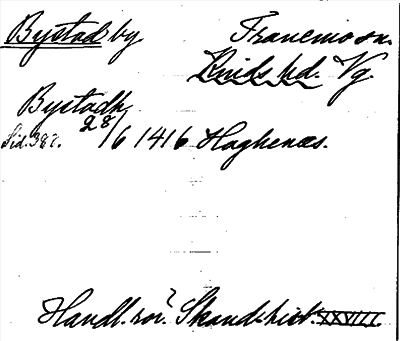 Bystad by Tranemo sn.
Kinds hd. Vg.
Bystadh
Sid. 382. 28/6 1416 Haghenæs.
Handl. rör. Skand. hist. XXVIII.